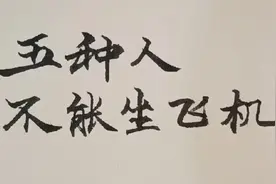 五种人
不能坐飞机